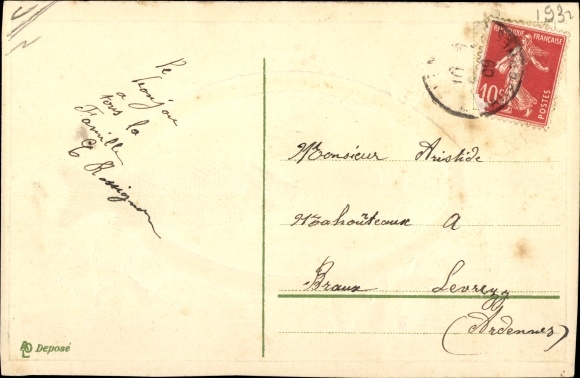 1932
RÉPUBLIQUE FRANÇAISE
10c
POSTES
Le
Bonjour
a
tous la
Famille
E Rossignon
Monsieur Aristide
Mahoûteaux A
Braux Levrezy
(Ardennes)
Deposé